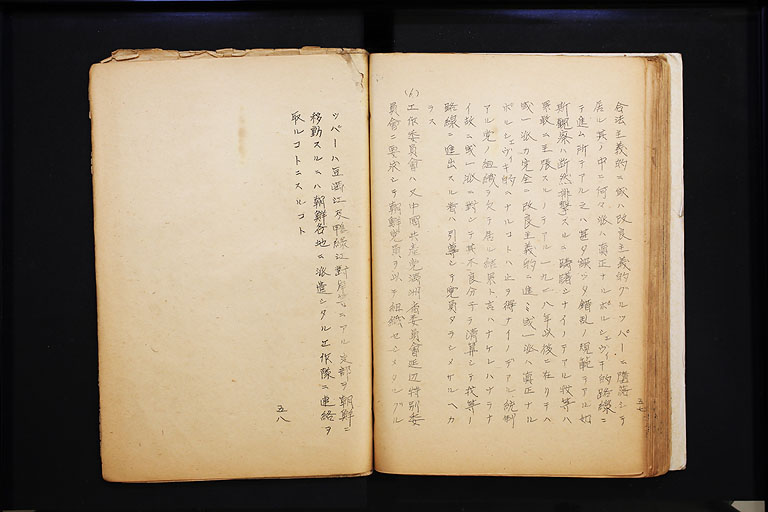 合法主義的ニ或ハ改良主義的グルツパーニ墮落シテ
居ル其ノ中ニ何々派ハ眞正ナルボルシエヴイキ的路線ニ
テ進ム所デアル之ハ甚ダ誤ツタ錯亂ノ規範デアル如
斯觀察ハ斷然排撃スルニ躊躇シナイノデアル我等ハ
果敢ニ主張スルノデアル一九二八年以後ニ在リテハ
或一派カ完全ニ改良主義的ニ進ミ或一派ハ眞正ナル
ボルシエヴイキ的ニナルコトハ止ヲ得ナイノデアル統制
アル党ノ組織ヲ欠テ居ル結果ト言ハナケレハナラナ
イ故ニ或一派ニ對シテ其不良分子ヲ清算シテ我等ノ
路線ニ進出スル者ハ引導シテ党員タラシメサルヘカ
ラス
(6)
工作委員會ハ又中國共産党滿洲省委員會延辺特別委
員會ニ要求シテ朝鮮党員ヲ以テ組織セシメタルグル
五七
ツパーハ豆滿江及鴨緑江對岸ニアル支部ヲ朝鮮ニ
移動スルニハ朝鮮各地ニ派遣シタル工作隊ニ連絡ヲ
取ルコトニスルコト
五八